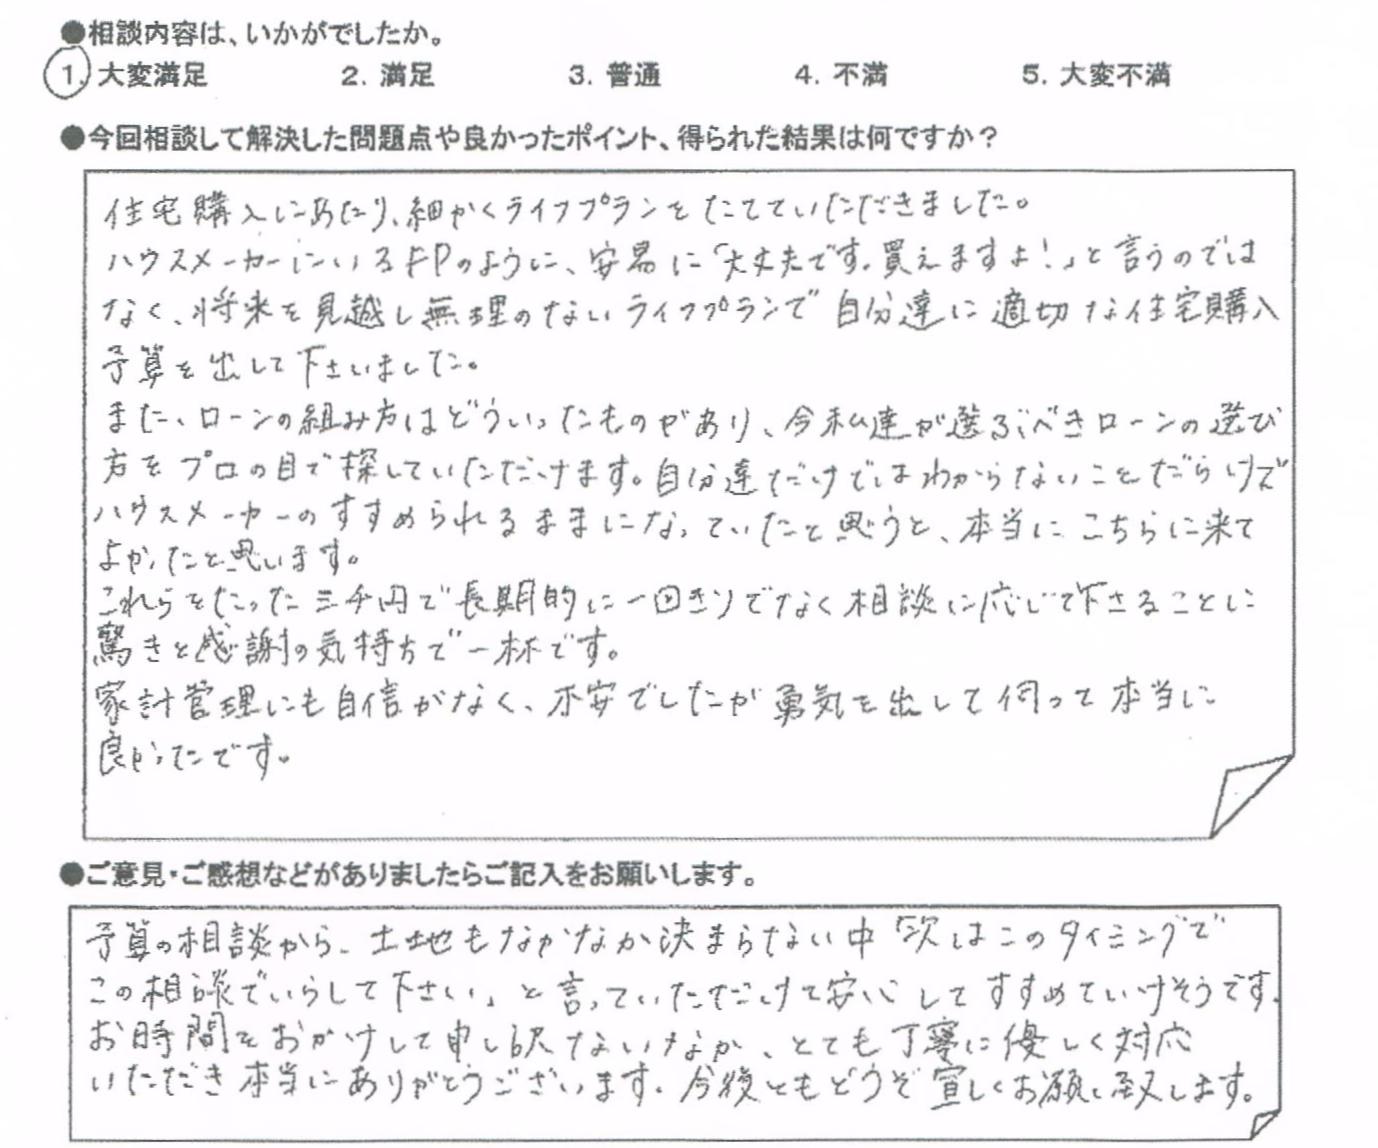 ●相談内容は、いかがでしたか。
1. 大変満足 2. 満足 3. 普通 4. 不満 5. 大変不満
●今回相談して解決した問題点や良かったポイント、得られた結果は何ですか？
住宅購入にあたり、細かくライフプランをたてていただきました。
ハウスメーカーにいるFPのように、安易に「大丈夫です。買えますよ！」と言うのでは
なく、将来を見越し無理のないライフプランで自分達に適切な住宅購入
予算を出して下さいました。
また、ローンの組み方はどういったものがあり、今私達が選ぶべきローンの選び
方をプロの目で探していただけます。自分達だけではわからないことだらけで
ハウスメーカーのすすめられるままになっていたと思うと、本当にこちらに来て
よかったと思います。
これらをたった三千円で長期的に一回きりでなく相談に応じて下さることに
驚きと感謝の気持ちで一杯です。
家計管理にも自信がなく、不安でしたが勇気を出して伺って本当に
良かったです。
●ご意見・ご感想などがありましたらご記入をお願いします。
予算の相談から、土地もなかなか決まらない中「次はこのタイミングで
この相談でいらして下さい」と言っていただけて安心してすすめていけそうです。
お時間をおかけして申し訳ないなか、とても丁寧に優しく対応
いただき本当にありがとうございます。今後ともどうぞ宜しくお願い致します。